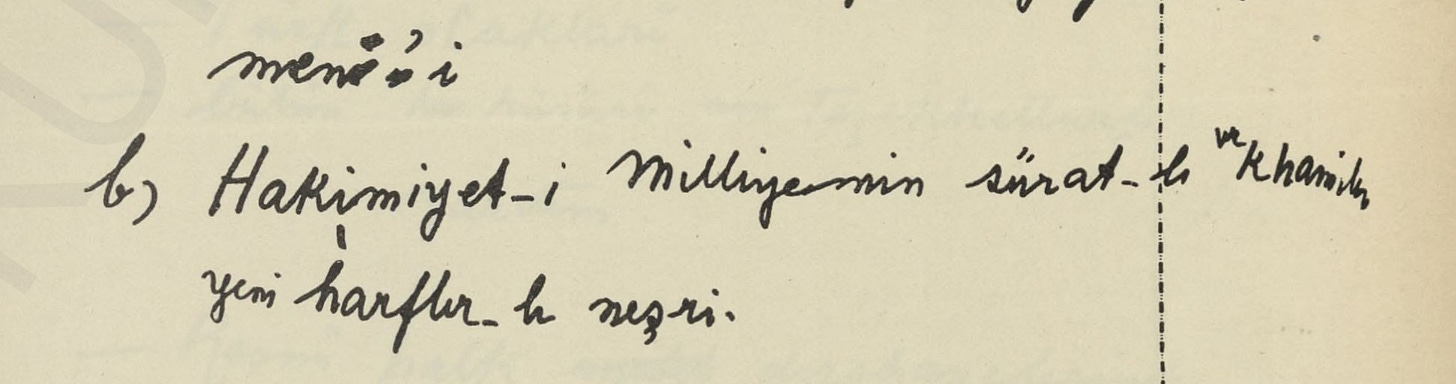 b) Hakimiyet-i Milliye-nin sürat-le ve
yeni harfler-le neşri.